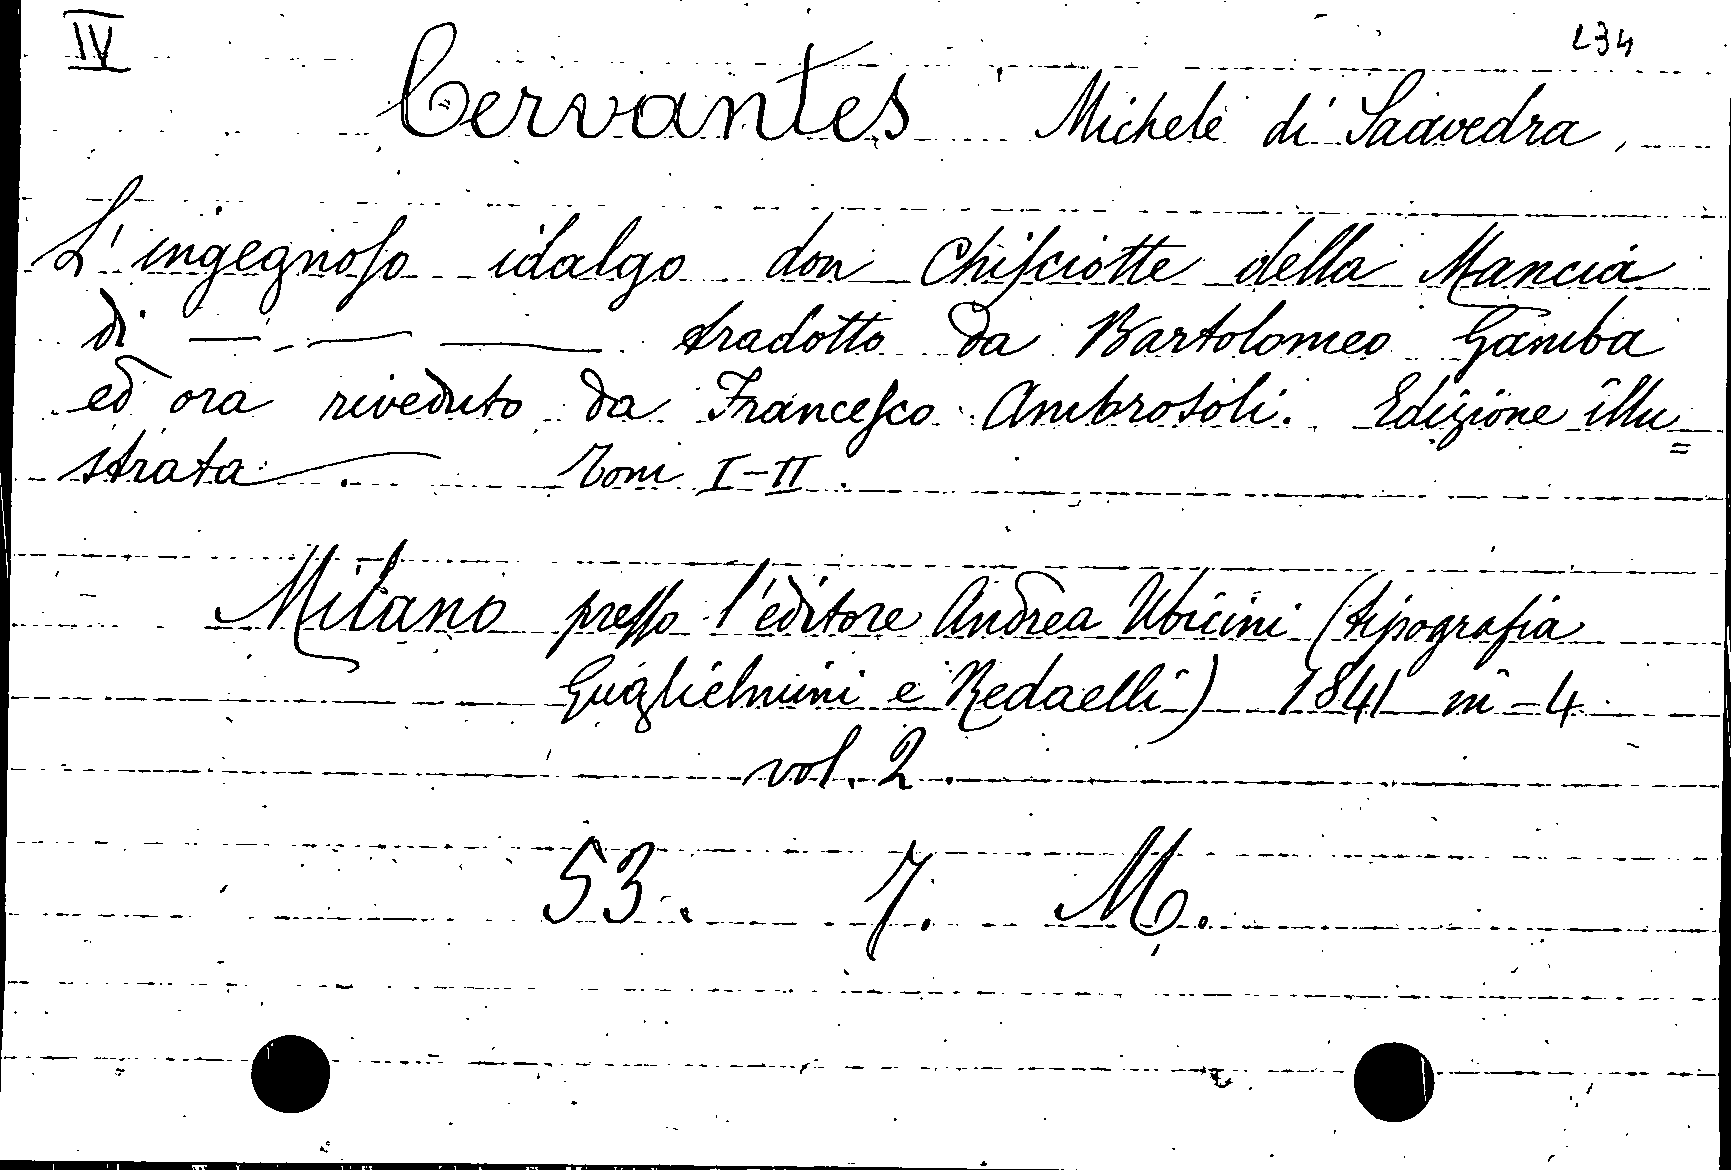 IV 234
Cervantes Michele di Saavedra,
L'ingegnoso idalgo don Chisciotte della Mancia
di — — — tradotto da Bartolomeo Gamba
ed ora riveduto da Francesco Ambrosoli. Edizione illu=
strata — . Tom I-II.
Milano presso l'editore Andrea Ubicini (tipografia
Guglielmini e Redaelli) 1841 in-4
vol. 2.
53. 7. M.